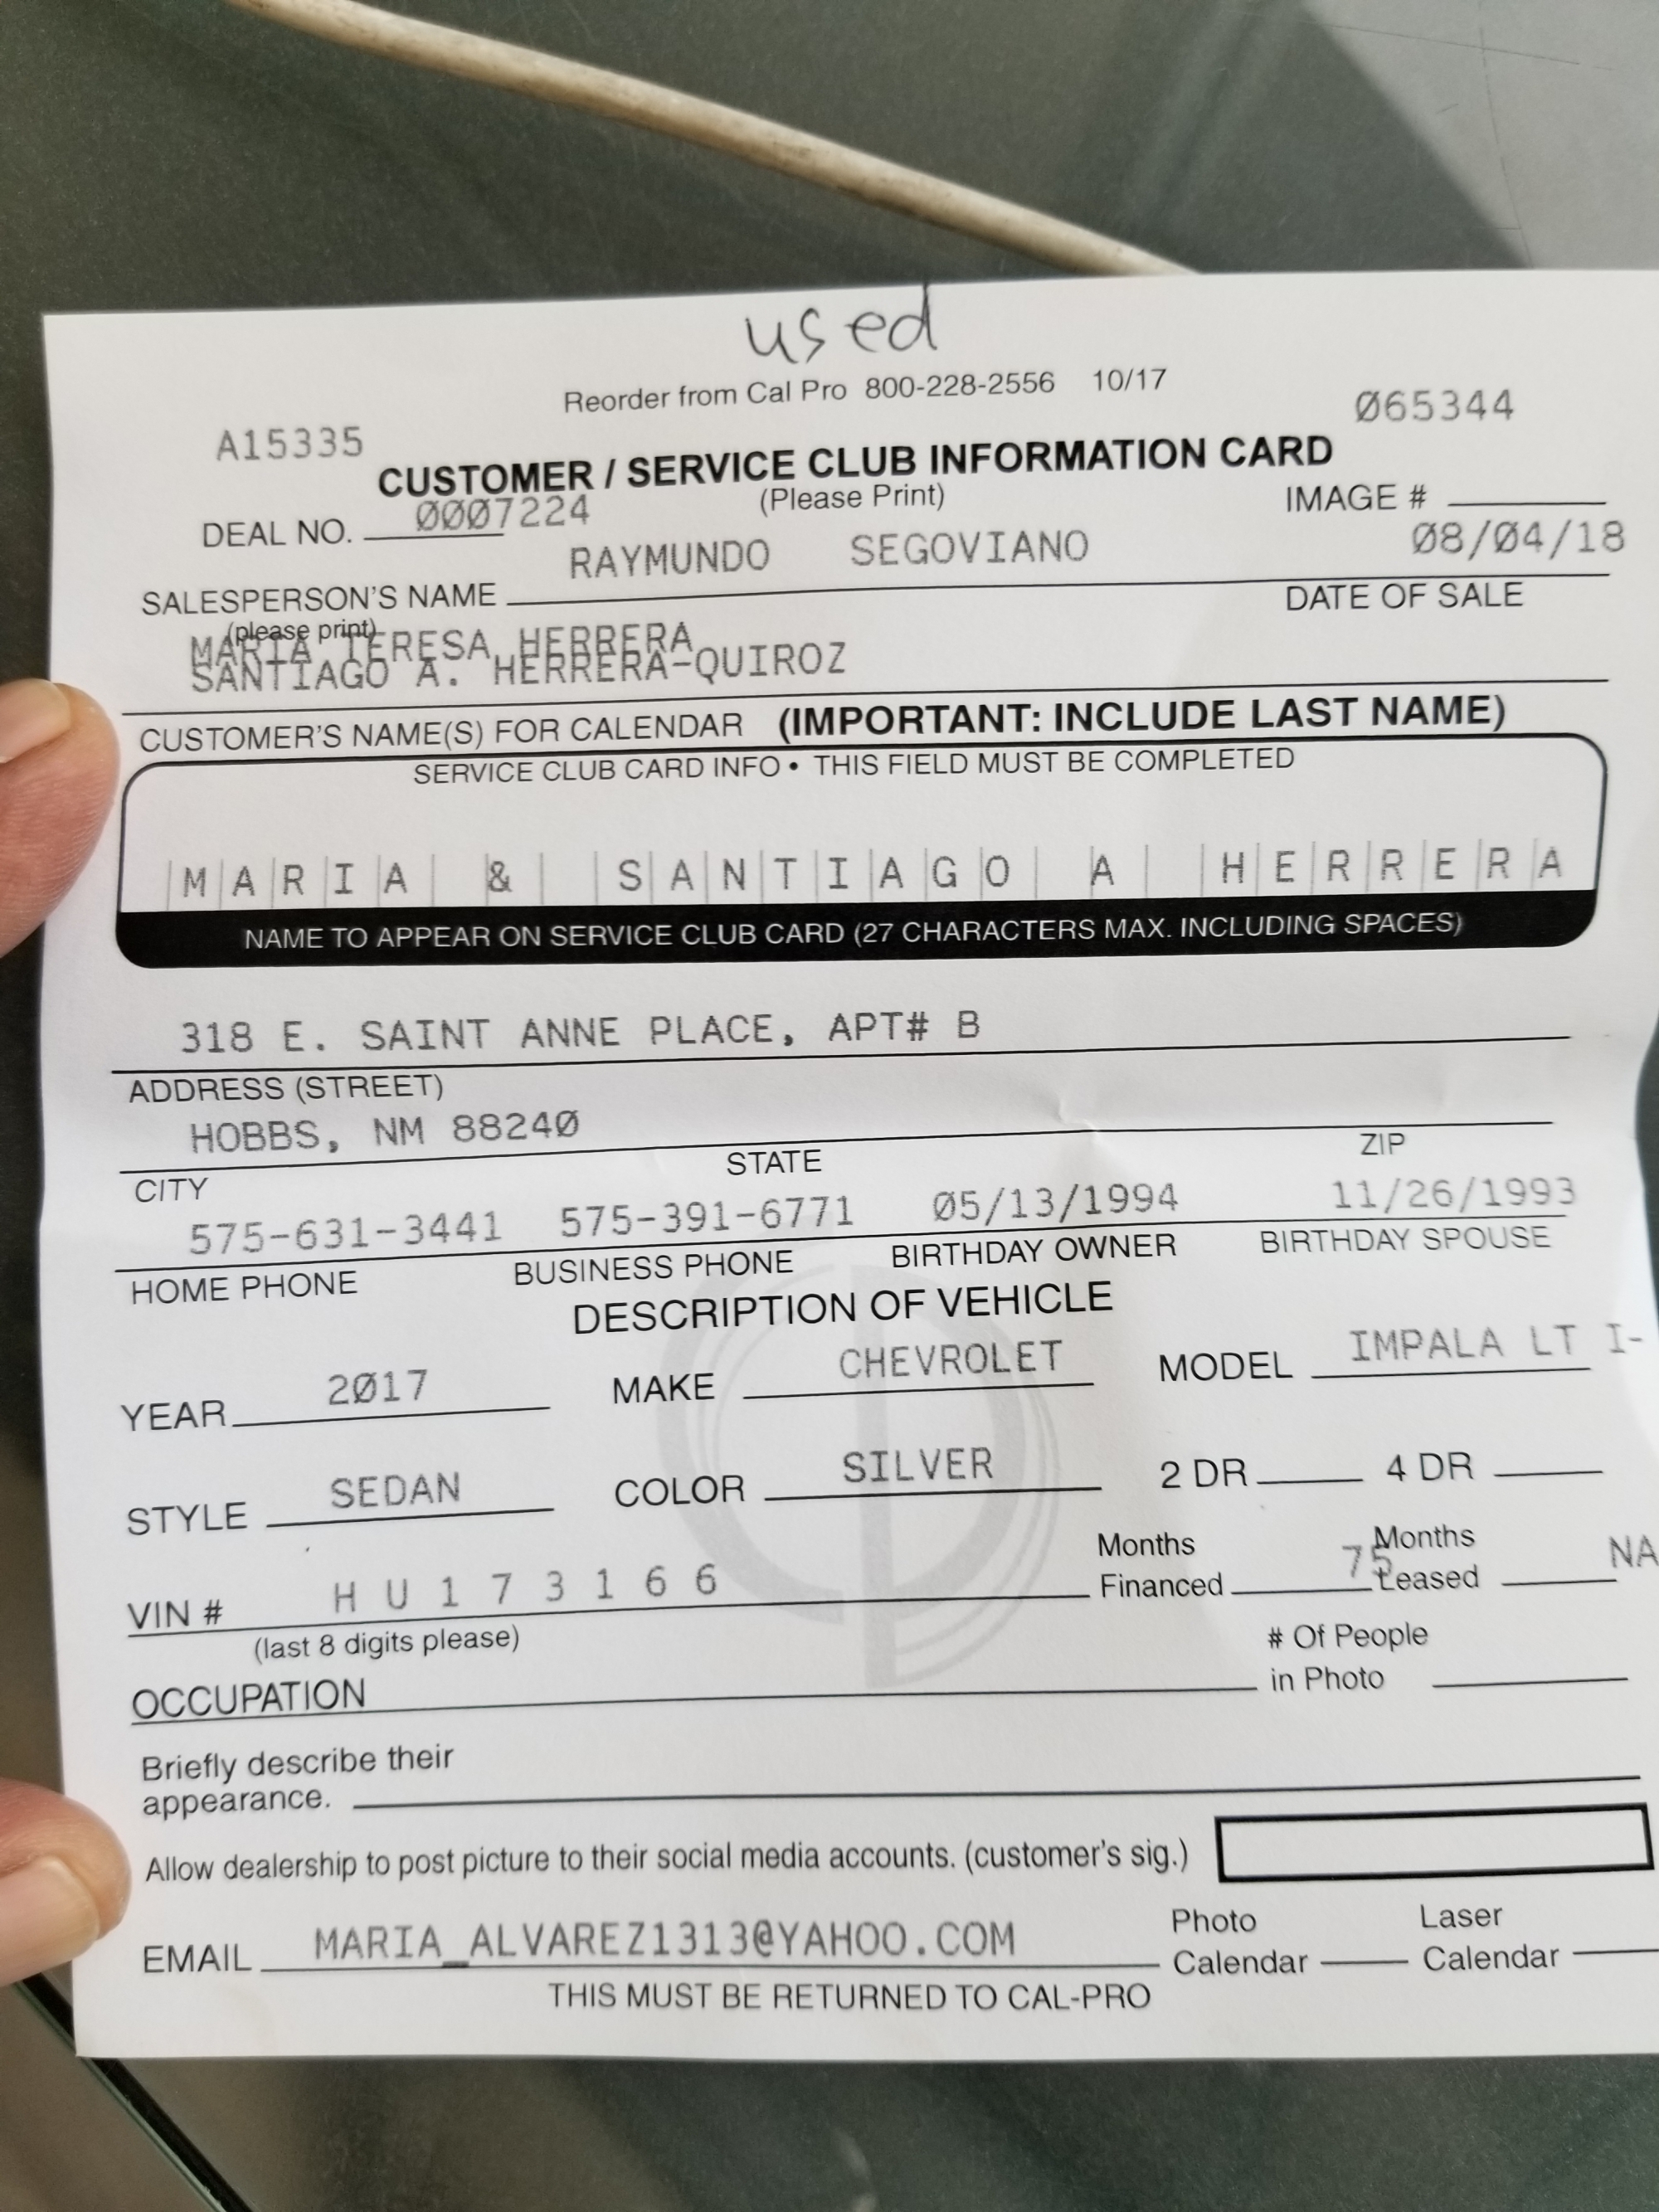 used
Reorder from Cal Pro 800-228-2556 10/17
A15335 Ø65344
CUSTOMER / SERVICE CLUB INFORMATION CARD
(Please Print)
DEAL NO. ØØØ7224 IMAGE #
RAYMUNDO SEGOVIANO Ø8/Ø4/18
SALESPERSON'S NAME DATE OF SALE
(please print)
MARIA TERESA HERRERA
SANTIAGO A. HERRERA-QUIROZ
CUSTOMER'S NAME(S) FOR CALENDAR (IMPORTANT: INCLUDE LAST NAME)
SERVICE CLUB CARD INFO • THIS FIELD MUST BE COMPLETED
MARIA & SANTIAGO A HERRERA
NAME TO APPEAR ON SERVICE CLUB CARD (27 CHARACTERS MAX. INCLUDING SPACES)
318 E. SAINT ANNE PLACE, APT# B
ADDRESS (STREET)
HOBBS, NM 8824Ø
CITY STATE ZIP
575-631-3441 575-391-6771 Ø5/13/1994 11/26/1993
HOME PHONE BUSINESS PHONE BIRTHDAY OWNER BIRTHDAY SPOUSE
DESCRIPTION OF VEHICLE
YEAR 2Ø17 MAKE CHEVROLET MODEL IMPALA LT I-
STYLE SEDAN COLOR SILVER 2 DR 4 DR
VIN # H U 1 7 3 1 6 6 Months Financed 75 Months Leased NA
(last 8 digits please)
OCCUPATION # Of People in Photo
Briefly describe their
appearance.
Allow dealership to post picture to their social media accounts. (customer's sig.)
EMAIL MARIA_ALVAREZ1313@YAHOO.COM Photo Calendar Laser Calendar
THIS MUST BE RETURNED TO CAL-PRO